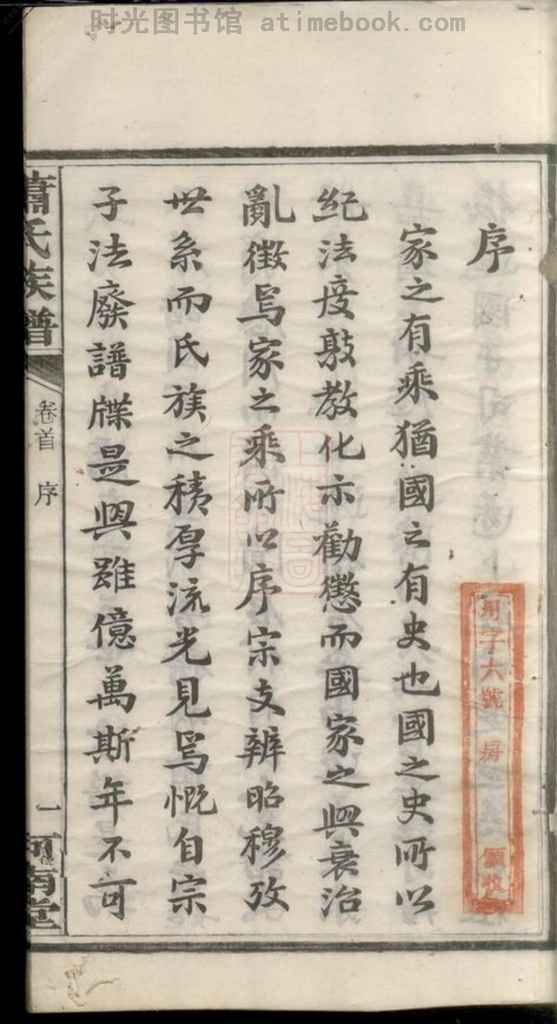 时光图书馆 atimebook.com
序
家之有乘猶國之有史也國之史所以
紀法度敦教化示勸懲而國家之興衰治
亂徵焉家之乘所以序宗支辨昭穆攷
世系而氏族之積厚流光見焉慨自宗
子法廢譜牒是興雖億萬斯年不可
蕭氏族譜
卷首 序
一
河南堂
字六號
房
領收